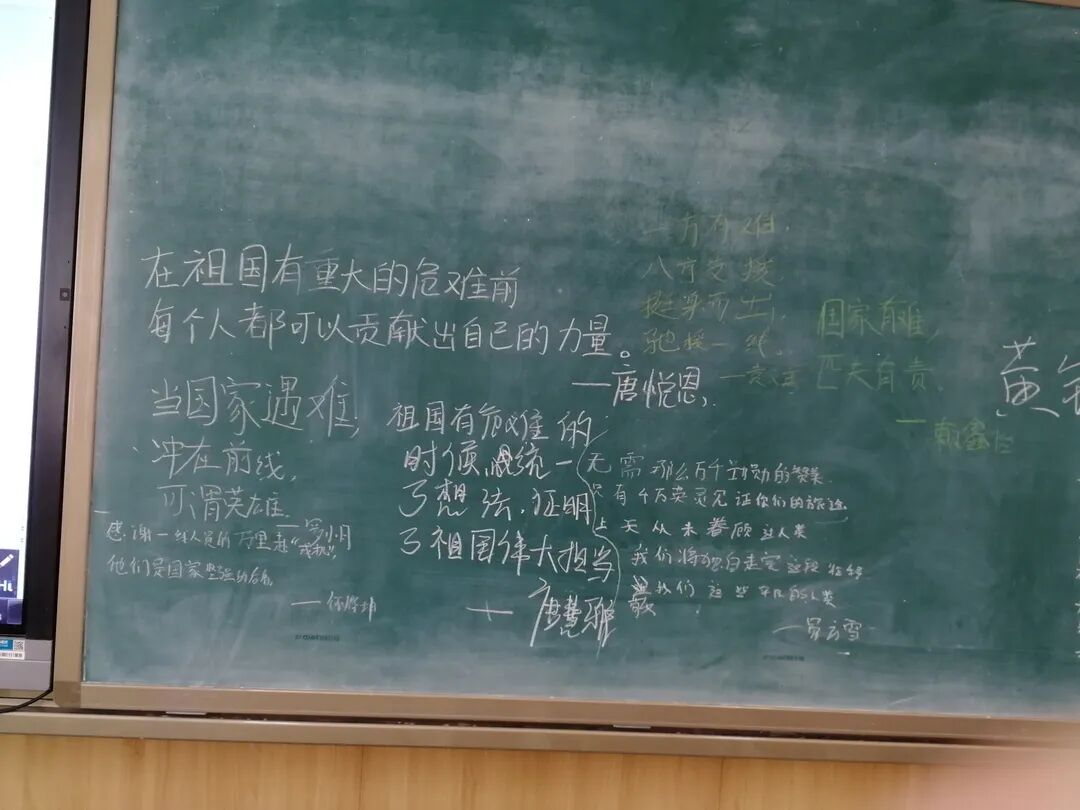 在祖国有重大的危难前
每个人都可以贡献出自己的力量。
——唐悦恩.
当国家遇难,
冲在前线,
可谓英雄.
感谢一线人员的万里赴“戎机”,
他们是国家坚强的后盾.
祖国有危难的
时候,统一
了想法,证明
了祖国伟大担当
——唐慧雅
一方有难,
八方支援,
挺身而出,
驰援一线,
国家有难,
匹夫有责.
无需那么百千功勋的赞美
只有千万英灵见证你们的旅途
上天从未眷顾这人类
我们将独自走完这段
我们这些平凡的人类
——罗云雪
黄